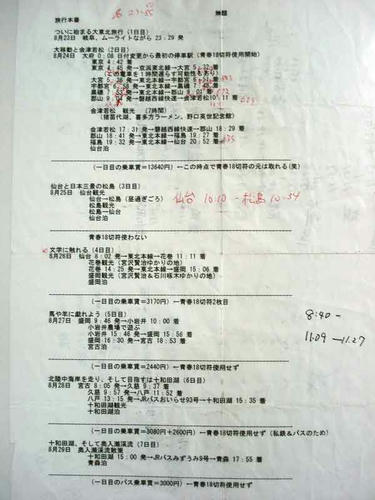 無題
旅行本番
ついに始まる大東北旅行(1日目)
8月23日 岐阜、ムーライトながら 23:29 発
大移動と会津若松(2日目)
8月24日 大府 0:08 日付変更から最初の停車駅(青春18切符使用開始)
東京 4:42 着
会津若松 観光 (7時間)
(猪苗代湖、喜多方ラーメン、野口英世記念館)
会津若松 17:31 発→磐越西線快速→郡山 18:29 着
郡山 18:41 発→東北本線→福島 19:27 着
福島 19:32 発→東北本線→仙台 20:52 着
仙台泊
(一日目の乗車賃=13640円)←この時点で青春18切符の元は取れる(笑)
仙台と日本三景の松島(3日目)
8月25日 仙台観光
仙台→松島(昼過ぎごろ) 仙台 10:10 - 松島 10:54
松島観光
松島→仙台
仙台泊
青春18切符使わない
文字に触れる(4日目)
8月26日 仙台 8:02 発→東北本線→花巻 11:11 着
花巻観光(宮沢賢治ゆかりの地)
花巻 14:25 発→東北本線→盛岡 15:06 着
盛岡観光(宮沢賢治&石川啄木ゆかりの地)
盛岡泊
(一日目の乗車賃=3170円)←青春18切符2枚目
8:40-
馬や羊に戯れよう(5日目)
8月27日 盛岡 9:46 発→小岩井 10:00 着
小岩井農場で遊ぶ
11:09 - 11:27
小岩井 15:46 発→盛岡 15:56 着
盛岡 16:30 発→宮古 18:53 着
宮古泊
(一日目の乗車賃=2440円)←青春18切符使用せず
北陸中海岸を走り、そして目指すは十和田湖(6日目)
8月28日 宮古 8:05 発→久慈 9:37 着
久慈 9:57 発→八戸 11:52 着
八戸 13:15 発→JRバスおいらせ93号→十和田湖 15:35 着
十和田湖観光
十和田湖泊
(一日目の乗車賃=3080円+2600円)←青春18切符使用せず(私鉄&バスのため)
十和田湖、そして奥入瀬渓流(7日目)
8月29日 奥入瀬渓流散策
十和田湖 15:00 発→JRバスみずうみ9号→青森 17:55 着
青森泊
(一日目のバス乗車賃=3000円)←青春18切符使用せず